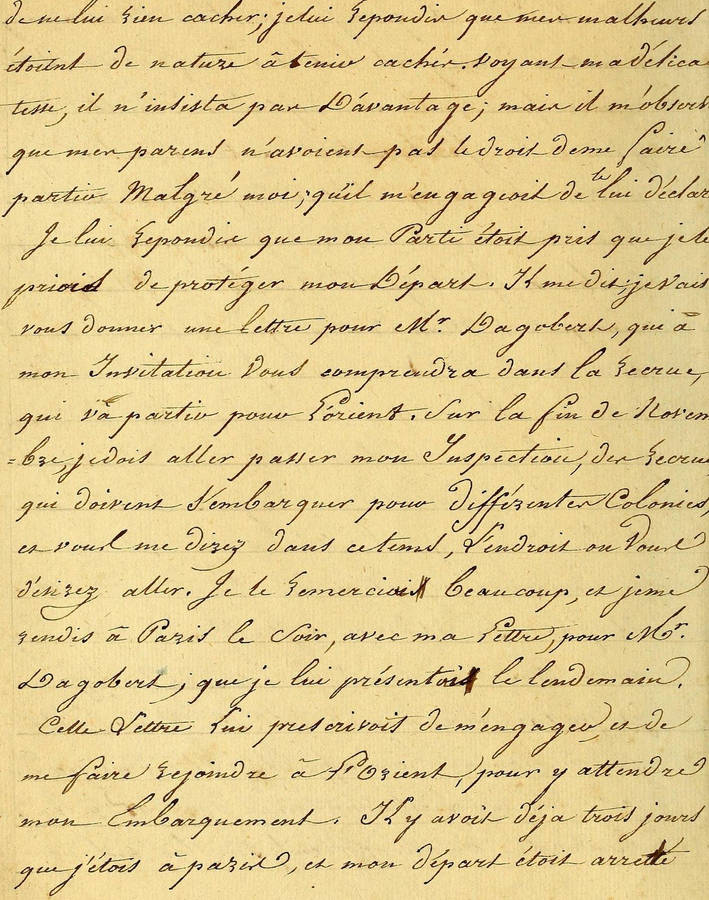 de ne lui rien cacher; je lui repondis que mes malheurs
étoient de nature à tenir cachés. voyant ma délica
tesse, il n'insista pas D'avantage; mais il m'observ
que mes parens n'avoient pas le droit de me faire
partir Malgré moi; qu'il m'engageoit de te lui déclar
Je lui repondis que mon Parti étoit pris que je le
priois de protéger mon Départ. Il me dit; je vais
vous donner une lettre pour Mr. Dagobert, qui à
mon Invitation Vous comprendra dans la recrue,
qui va partir pour L'orient. Sur la fin de Novem
=bre, je dois aller passer mon Inspection, des recrue
qui doivent s'embarquer pour différentes Colonies,
et vous me direz dans ce tems, L'endroit ou Vous
désirez aller. Je le remerciais beaucoup, et je me
rendis à Paris le Soir, avec ma Lettre, pour Mr.
Dagobert; que je lui présentois le lendemain.
Cette Lettre Lui prescrivoit de m'engager, et de
me faire rejoindre à L'Orient, pour y attendre
mon Embarquement. Il y avoit déja trois jours
que j'étois à paris, et mon départ étoit arretté